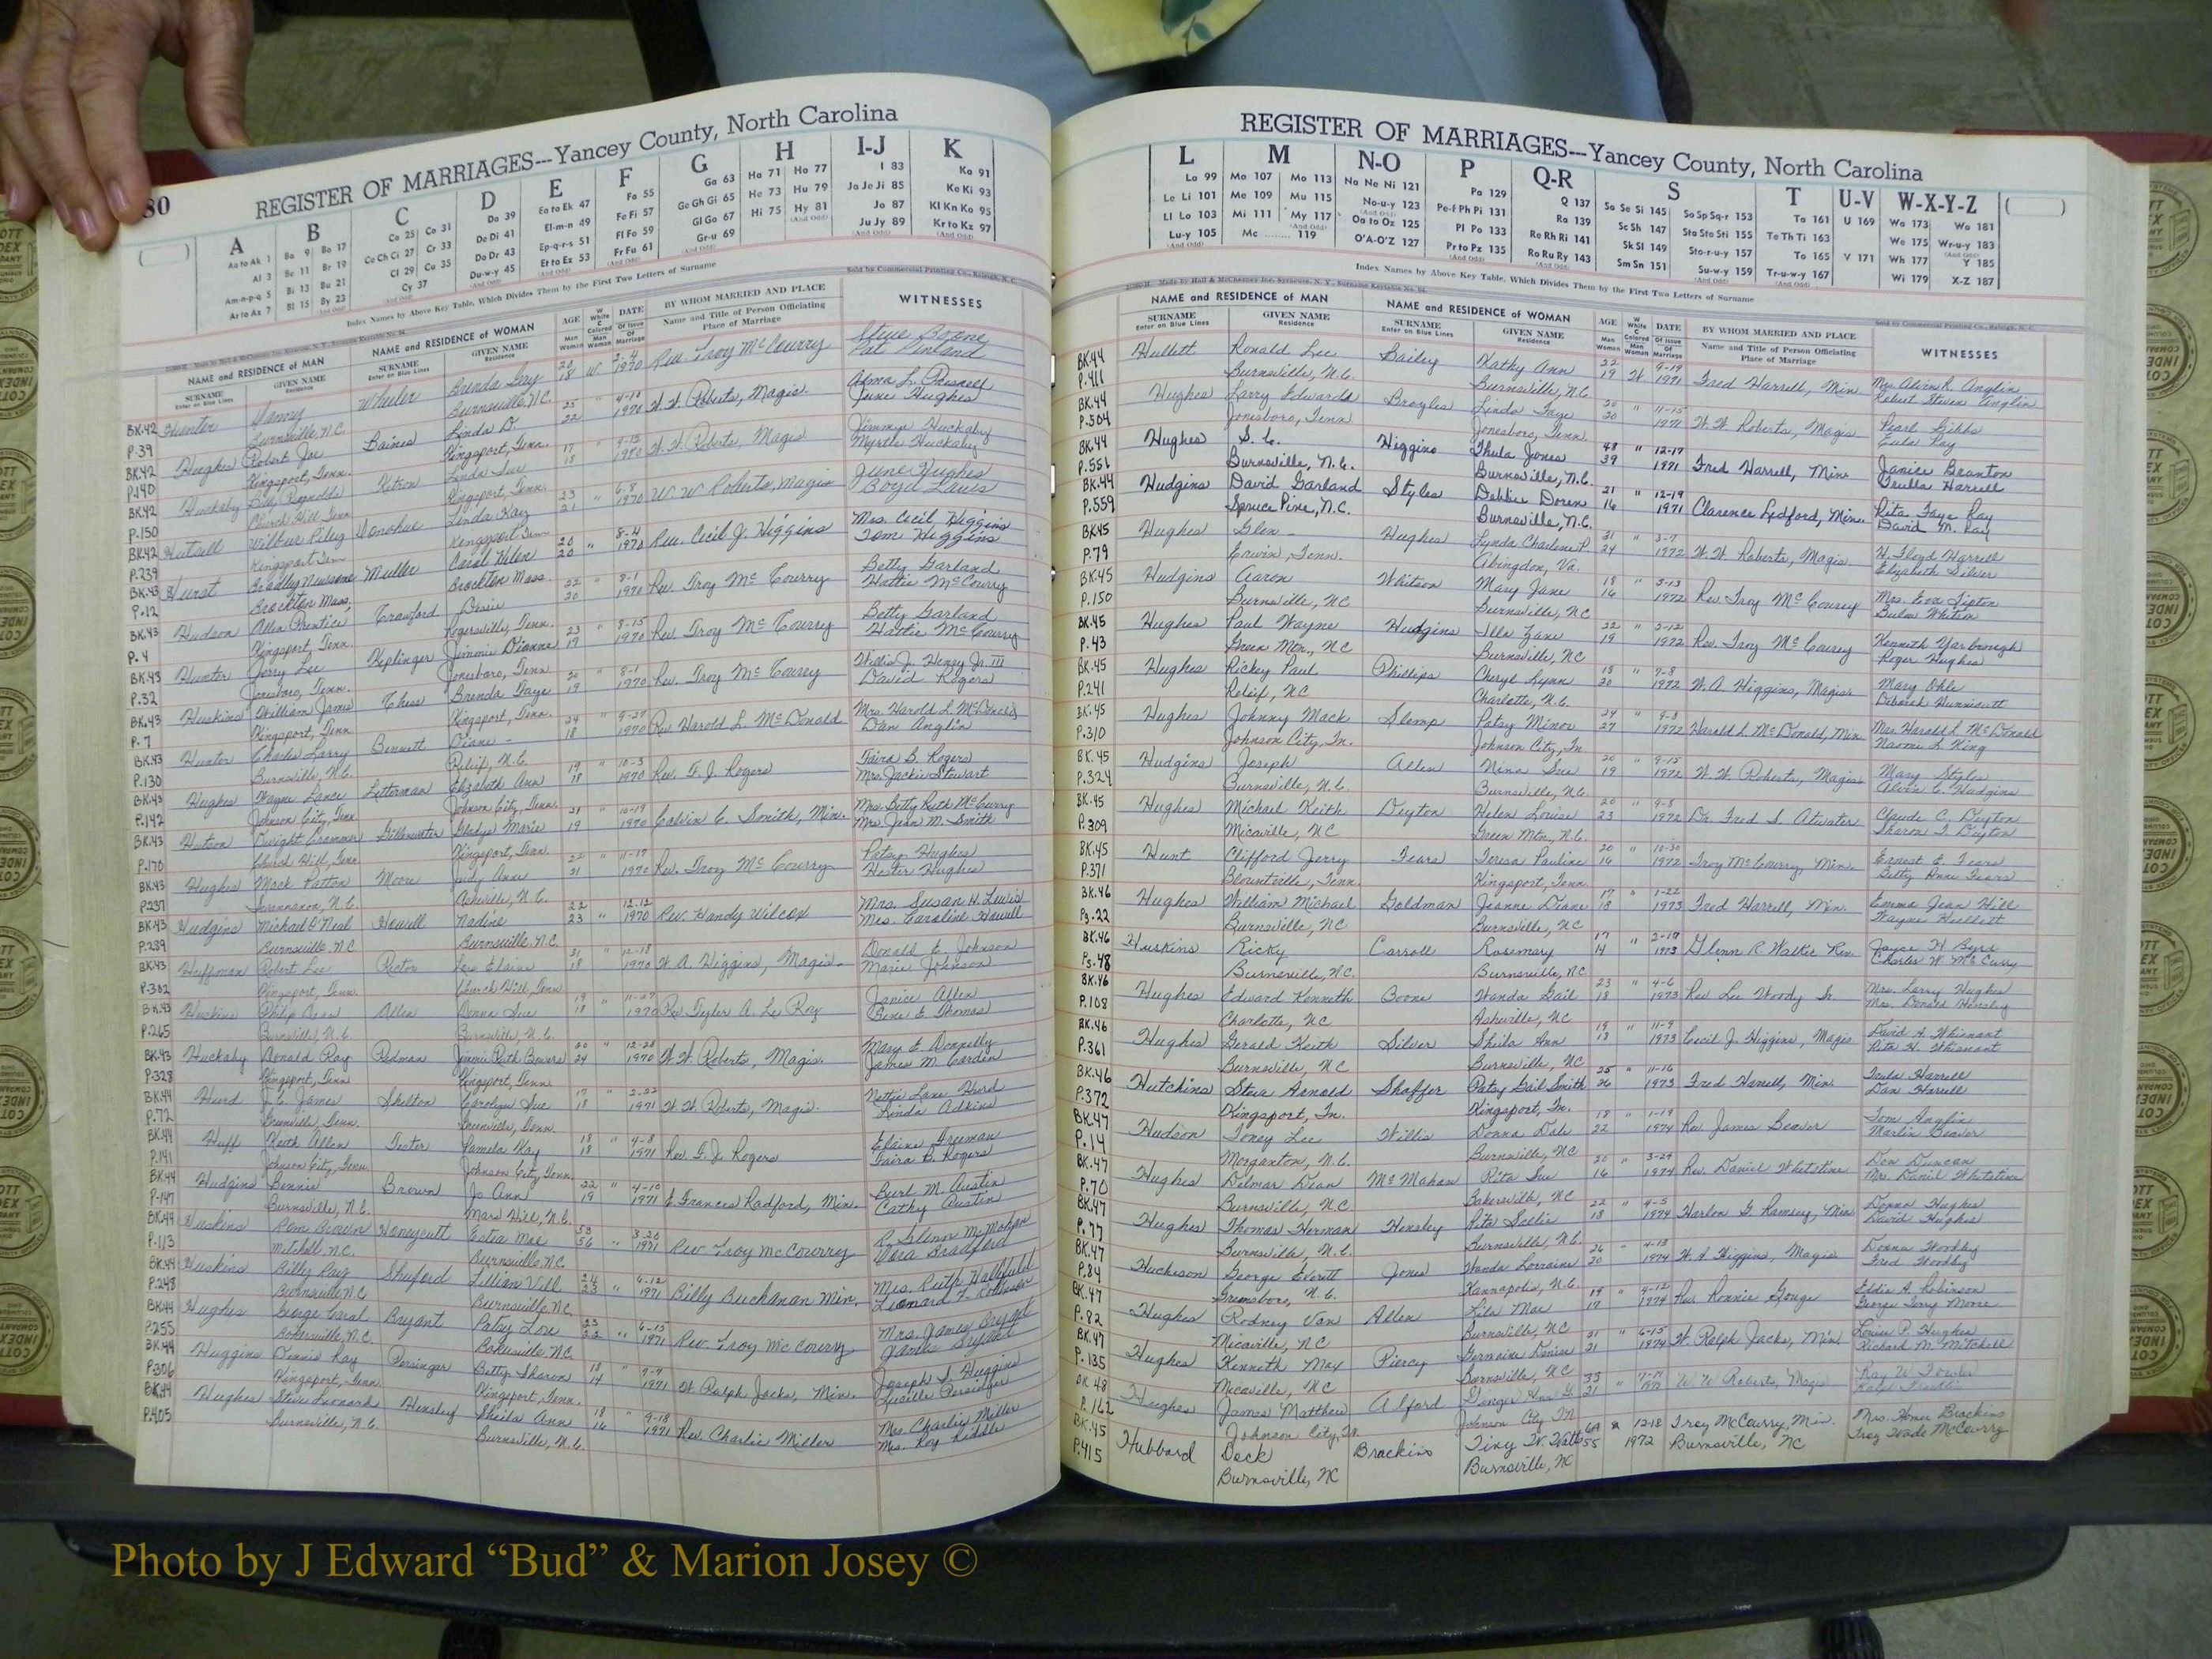 80
REGISTER OF MARRIAGES---Yancey County, North Carolina
A B C D E F G H I-J K
Aa to Ak 1 Ba 9 Bo 17 Ca 25 Co 31 Da 39 Ea to Ek 47 Fa 55 Ga 63 Ha 71 Ho 77 I 83 Ka 91
Al 3 Be 11 Br 19 Ce Ch Ci 27 Cr 33 De Di 41 El-m-n 49 Fe Fi 57 Ge Gh Gi 65 He 73 Hu 79 Ja Je Ji 85 Ke Ki 93
Am-n-p-q 5 Bi 13 Bu 21 Cl 29 Cu 35 Do Dr 43 Ep-q-r-s 51 Fl Fo 59 Gl Go 67 Hi 75 Hy 81 Jo 87 Kl Kn Ko 95
Ar to Az 7 Bl 15 By 23 Cy 37 Du-w-y 45 Et to Ez 53 Fr Fu 61 Gr-u 69 Ju Jy 89 Kr to Kz 97
Index Names by Above Key Table, Which Divides Them by the First Two Letters of Surname
Sold by Commercial Printing Co., Raleigh, N. C.
NAME and RESIDENCE of MAN NAME and RESIDENCE of WOMAN AGE DATE BY WHOM MARRIED AND PLACE WITNESSES
SURNAME GIVEN NAME SURNAME GIVEN NAME Name and Title of Person Officiating
Enter on Blue Lines Residence Enter on Blue Lines Residence Place of Marriage
BK.42 Hunter Wheeler Brenda Gay 20 18 W 2-4 1970 Rev. Troy McCourry Steve Boone
P.39 Burnsville, N.C. Burnsville, N.C.
BK.42 Hughes Robert Joe Baines Linda D. 25 22 " 4-18 1970 W. W. Roberts, Magis. June Hughes
P.140 Kingsport, Tenn. Kingsport, Tenn.
BK.42 Huckaby Billy Reynolds Linda Sue 17 18 " 1970 W. W. Roberts, Magis Jimmye Huckaby Myrtle Huckaby
P.150 Church Hill, Tenn. Kingsport, Tenn.
BK.42 Wilbur Riley Donohue Linda Kay 23 21 " 6-8 1970 W. W. Roberts, Magis June Hughes
P.239 Kingsport Kingsport
BK.43 Hurst Bradley Newsome Muller Carol Helen 20 20 " 8-4 1970 Rev. Cecil J. Higgins Mrs. Cecil Higgins Tom Higgins
P.12 Brockton Mass, Brockton Mass.
BK.43 Hudson Allen Prentice Crawford 22 20 " 8-1 1970 Rev. Troy McCourry Betty Garland Hattie McCourry
P.4 Kingsport, Tenn. Rogersville, Tenn.
BK.43 Hunter Jerry Lee Keplinger Jimmie Dianne 23 19 " 8-15 1970 Rev. Troy McCourry Betty Garland Hattie McCourry
P.32 Jonesboro, Tenn. Jonesboro, Tenn
BK.43 Huskins William James Brenda Faye 20 19 " 8-1 1970 Rev. Troy McCourry Willis J. Henry Jr. III David Rogers
P.7 Kingsport, Tenn. Kingsport, Tenn.
BK.43 Hunter Charles Larry Bennett Diane - 24 18 " 9-27 1970 Rev. Harold L. McDonald Mrs. Harold L. McDonald Dan Anglin
P.130 Burnsville, N.C. Relief, N.C.
BK.43 Hughes Wayne Lance Letterman Elizabeth Ann 19 18 " 10-3 1970 Rev. F. J. Rogers Faira B. Rogers Mrs. Jackie Stewart
P.142 Johnson City, Tenn Johnson City, Tenn.
BK.43 Hutson Dwight Gladys Marie 21 19 " 10-19 1970 Calvin C. Smith, Min. Mrs. Betty Ruth McCurry Mrs. Jean M. Smith
P.170 Church Hill, Tenn Kingsport, Tenn.
BK.43 Hughes Mack Patton Moore Judy Anne 22 21 " 11-19 1970 Rev. Troy McCourry Patsy Hughes Hester Hughes
P.237 Swannanoa, N.C. Asheville, N.C.
BK.43 Hudgins Michael O'Neal Howell Nadine 22 23 " 12-12 1970 Rev. Handy Wilcox Mrs. Susan H. Lewis Mrs. Caroline Howell
P.289 Burnsville, N.C. Burnsville, N.C.
BK.43 Huffman Robert Lee Rector Elaine 31 18 " 12-18 1970 W. A. Higgins, Magis. Donald E. Johnson Marie Johnson
P.302 Kingsport, Tenn. Church Hill, Tenn.
BK.43 Huskins Philip Dean Allen Donna Sue 19 18 " 11-27 1970 Rev. Tyler A. Le Roy Janice Allen Gene E. Thomas
P.265 Burnsville, N.C. Burnsville, N.C.
BK.43 Huckaby Donald Ray Redman Jimmie Ruth Bowers 20 24 " 12-28 1970 W. W. Roberts, Magis. Mary E. Donnelly James M. Carden
P.328 Kingsport, Tenn Kingsport, Tenn
BK.44 Hurd J.C. James Shelton Carolyn Sue 17 18 " 2-22 1971 W. W. Roberts, Magis. Nettie Lane Hurd Linda Adkins
P.72 Greenville, Tenn. Greenville, Tenn.
BK.44 Huff Keith Allen Tester Pamela Kay 18 18 " 4-8 1971 Rev. F. J. Rogers Elaine Freeman Faira B. Rogers
P.141 Johnson City, Tenn. Johnson City, Tenn.
BK.44 Hudgins Bennie Brown Jo Ann 22 19 " 4-10 1971 E. Frances Radford, Min. Burl M. Austin Cathy Austin
P.147 Burnsville, N.C. Mars Hill, N.C.
BK.44 Huskins Honeycutt Estia Mae 53 56 " 3-20 1971 Rev. Troy McCourry R. Glenn McMahan Vera Bradford
P.113 Mitchell, N.C. Burnsville, N.C.
BK.44 Huskins Billy Ray Shuford Lillian 24 23 " 6-12 1971 Billy Buchanan Min.
P.248 Burnsville, N.C. Burnsville, N.C.
BK.44 Hughes George Bryant Patsy Lou 23 22 " 6-13 1971 Rev. Troy McCourry Mrs. James Bryant James Bryant
P.255 Bakersville, N.C. Bakersville, N.C.
BK.44 Huggins Dennis Ray Persinger Betty Sharon 18 14 " 7-7 1971 W. Ralph Jacks, Min. Joseph S. Huggins Lucille Persinger
P.306 Kingsport, Tenn. Kingsport, Tenn.
BK.44 Hughes Steve Leonard Hensley Sheila Ann 18 16 " 9-18 1971 Rev. Charlie Miller Mrs. Charlie Miller Mrs. Roy Riddle
P.405 Burnsville, N.C. Burnsville, N.C.
REGISTER OF MARRIAGES---Yancey County, North Carolina
L M N-O P Q-R S T U-V W-X-Y-Z
La 99 Ma 107 Mo 113 Na Ne Ni 121 Pa 129 Q 137 Sa Se Si 145 So Sp Sq-r 153 Ta 161 U 169 Wa 173 Wo 181
Le Li 101 Me 109 Mu 115 No-u-y 123 Pe-f Ph Pi 131 Ra 139 Sc Sh 147 Sta Ste Sti 155 Te Th Ti 163 We 175 Wr-u-y 183
Ll Lo 103 Mi 111 My 117 Oa to Oz 125 Pl Po 133 Re Rh Ri 141 Sk Sl 149 Sto-r-u-y 157 To 165 V 171 Wh 177 Y 185
Lu-y 105 Mc 119 O'A-O'Z 127 Pr to Pz 135 Ro Ru Ry 143 Sm Sn 151 Su-w-y 159 Tr-u-w-y 167 Wi 179 X-Z 187
Index Names by Above Key Table, Which Divides Them by the First Two Letters of Surname
Made by Hall & McChesney Inc. Syracuse, N. Y. Sold by Commercial Printing Co., Raleigh, N. C.
NAME and RESIDENCE of MAN NAME and RESIDENCE of WOMAN AGE DATE BY WHOM MARRIED AND PLACE WITNESSES
SURNAME GIVEN NAME SURNAME GIVEN NAME Name and Title of Person Officiating
Enter on Blue Lines Residence Enter on Blue Lines Residence Place of Marriage
BK.44 Hullett Ronald Lee Bailey Kathy Ann 22 19 W. 9-19 1971 Fred Harrell, Min. Mrs. Alvin R. Anglin Robert Steven Anglin
P.411 Burnsville, N.C. Burnsville, N.C.
BK.44 Hughes Larry Edward Broyles Linda Faye 20 20 " 11-15 1971 W. W. Roberts, Magis Pearl Gibbs Eula Ray
P.504 Jonesboro, Tenn. Jonesboro, Tenn.
BK.44 Hughes S. C. Higgins Thula Jones 48 39 " 12-17 1971 Fred Harrell, Min Janice Branton Truilla Harrell
P.551 Burnsville, N.C. Burnsville, N.C.
BK.44 Hudgins David Garland Styles Debbie Doren 21 16 " 12-19 1971 Clarence Ledford, Min. Rita Faye Ray David M. Ray
P.559 Spruce Pine, N.C. Burnsville, N.C.
BK.45 Hughes Glen - Hughes Lynda Charlene P. 31 24 " 3-7 1972 W. W. Roberts, Magis. H. Floyd Harrell Elizabeth Silver
P.79 Erwin, Tenn. Abingdon, Va.
BK.45 Hudgins Aaron Whitson Mary Jane 18 16 " 5-13 1972 Rev Troy McCourry Mrs. Eva Tipton
P.150 Burnsville, NC Burnsville, NC
BK.45 Hughes Paul Wayne Hudgins Illa Zane 22 19 " 2-12 1972 Rev. Troy McCourry Kenneth Yarborough Roger Hughes
P.43 Green Mtn., NC Burnsville, NC
BK.45 Hughes Rickey Paul Phillips Cheryl Lynn 18 20 " 7-8 1972 W. A. Higgins, Magis. Mary Ohle Deborah Hunnicutt
P.241 Relief, NC Charlotte, N.C.
BK.45 Hughes Johnny Mack Slemp Patsy Minor 24 27 " 9-8 1972 Harold L McDonald, Min Mrs. Harold L McDonald Naomi L King
P.310 Johnson City, Tn. Johnson City, Tn
BK.45 Hudgins Joseph Allen Nina Sue 20 19 " 9-15 1972 W. W. Roberts, Magis. Mary Styles Alvin C. Hudgins
P.324 Burnsville, N.C. Burnsville, N.C.
BK.45 Hughes Michael Keith Deyton Helen Louise 20 23 " 9-8 1972 Dr. Fred S. Atwater Claude C. Deyton Sharon T. Deyton
P.309 Micaville, NC Green Mtn., N.C.
BK.45 Hunt Clifford Jerry Fears Teresa Pauline 20 16 " 10-30 1972 Troy McCourry, Min. Ernest E. Fears Betty Anne Fears
P.371 Blountville, Tenn. Kingsport, Tenn
BK.46 Hughes William Michael Goldman Jeanne Diane 17 18 " 1-22 1973 Fred Harrell, Min. Emma Jean Hill Wayne Hullett
Pg.22 Burnsville, NC Burnsville, NC
BK.46 Huskins Ricky Carroll Rosemary 17 14 " 2-17 1973 Glenn R Walker Rev. Joyce H Byrd Charles W. McCurry
Pg.48 Burnsville, NC. Burnsville, NC
BK.46 Hughes Edward Kenneth Boone Wanda Gail 23 18 " 4-6 1973 Rev Lee Woody Sr. Mrs. Larry Hughes Mrs. Donald Hensley
P.108 Charlotte, NC Asheville, NC
BK.46 Hughes Gerald Keith Silver Sheila Ann 19 18 " 11-9 1973 Cecil J. Higgins, Magis David A. Whisnant Rita H. Whisnant
P.361 Burnsville, NC Burnsville, NC
BK.46 Hutchins Steve Arnold Shaffer Patsy Gail Smith 25 26 " 11-16 1973 Fred Harrell, Min. Trula Harrell Dan Harrell
P.372 Kingsport, Tn. Kingsport, Tn.
BK.47 Hudson Toney Lee Willis Donna Dale 18 22 " 1-19 1974 Rev James Beaver Tom Anglin Martin Beaver
P.14 Morganton, N.C. Burnsville, NC
BK.47 Hughes Delmar Dean McMahan Rita Sue 20 16 " 3-24 1974 Rev. Daniel Whitstine Don Duncan Mrs. Daniel Whitstine
P.70 Burnsville, NC Bakersville, NC
BK.47 Hughes Thomas Herman Hensley Rita Sallie 22 18 " 4-5 1974 Harlon G. Ramsey, Min Donna Hughes David Hughes
P.77 Burnsville, N.C. Burnsville, N.C.
BK.47 Huchison George Everett Jones Wanda Lorraine 26 20 " 4-13 1974 W. A Higgins, Magis Donna Woodby Fred Woodby
P.84 Greensboro, N.C. Kannapolis, N.C.
BK.47 Hughes Rodney Van Allen Lila Mae 19 17 " 4-12 1974 Rev Ronnie Gouge Eddie A. Robinson George Terry Moore
P.82 Micaville, NC Burnsville, NC
BK.47 Hughes Kenneth Max Piercy Germaine Denise 21 21 " 6-15 1974 W. Ralph Jacks, Min. Louise P. Hughes Richard M. Mitchell
P.135 Micaville, NC Burnsville, NC
BK 48 Hughes James Matthew Alford Ginger 33 21 " W W Roberts, Magis Ray W Fowler
P. 162 Johnson City, Tn Johnson City TN
BK.45 Hubbard Dock Brackins Tiny W. Watts 64 55 12-18 1972 Troy McCourry, Min. Mrs. Homer Brackins Troy Wade McCourry
P.415 Burnsville, NC Burnsville, NC Burnsville, NC
Photo by J Edward “Bud” & Marion Josey ©